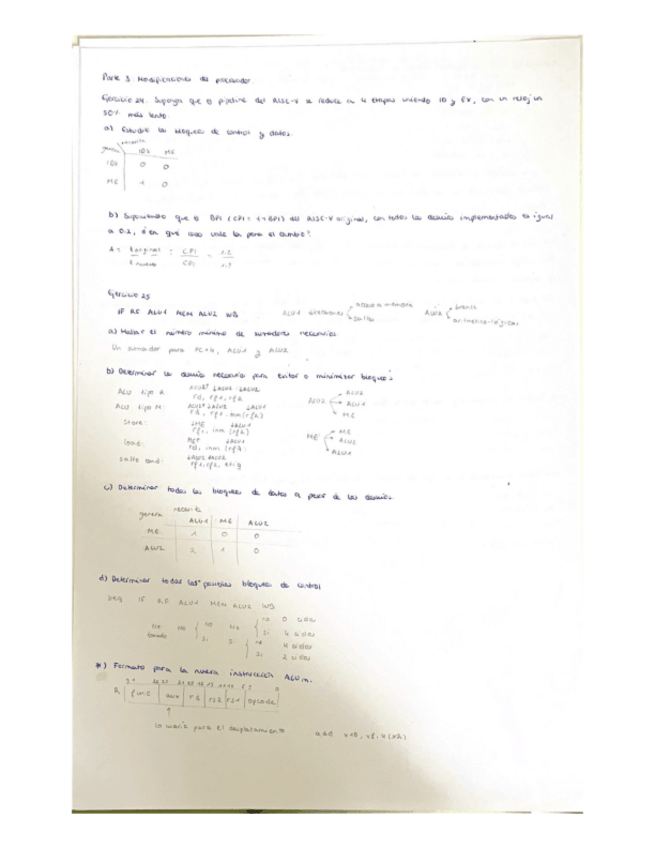 Parte 3. Modificaciones del procesador.
Ejercicio 24. Suponga que el pipeline del RISC-V se reduce a 4 etapas uniendo ID y EX, con un reloj un
50% más lento.
a) Estudie los bloqueos de control y datos.
genera necesita
IDX ME
IDX 0 0
ME 1 0
b) Suponiendo que el BPI (CPI = 1+BPI) del RISC-V original, con todos los desvíos implementados es igual
a 0.2, ¿en qué caso vale la pena el cambio?
A = t original = CPI = 1.2
t nuevo CPI
Ejercicio 25
IF RF ALU1 MEM ALU2 WB
ALU1 direcciones acceso a memoria
saltos
ALU2 branch
aritmético-lógicas
a) Hallar el número mínimo de sumadores necesarios.
Un sumador para PC+4, ALU1 y ALU2
b) Determinar los desvíos necesarios para evitar o minimizar bloqueos.
ALU tipo R: ALU2↑ ↓ALU2 ↓ALU2
rd, rf1, rf2
ALU tipo M: ALU2↑ ↓ALU2 ↓ALU1
rd, rf1, inm(rf2)
Store: ↓ME ↓ALU1
rf1, inm (rf2)
Load: ME↑ ↓ALU1
rd, inm (rf1)
Salto cond: ↓ALU2 ↓ALU2
rf1, rf2, etiq
ALU2 ALU2
ALU1
ME
ME ME
ALU2
ALU1
c) Determinar todos los bloqueos de datos a pesar de los desvíos.
genera necesita
ALU1 ME ALU2
ME 1 0 0
ALU2 2 1 0
d) Determinar todos los posibles bloqueos de control
IF RF ALU1 MEM ALU2 WB
No 0 ciclos
Si 4 ciclos
No 4 ciclos
Si 2 ciclos
*) Formato para la nueva instrucción ALUm.
R func aux rs rs2 rs1 opcode
lo usaría para el desplazamiento
add x10, x8, 4(x2)